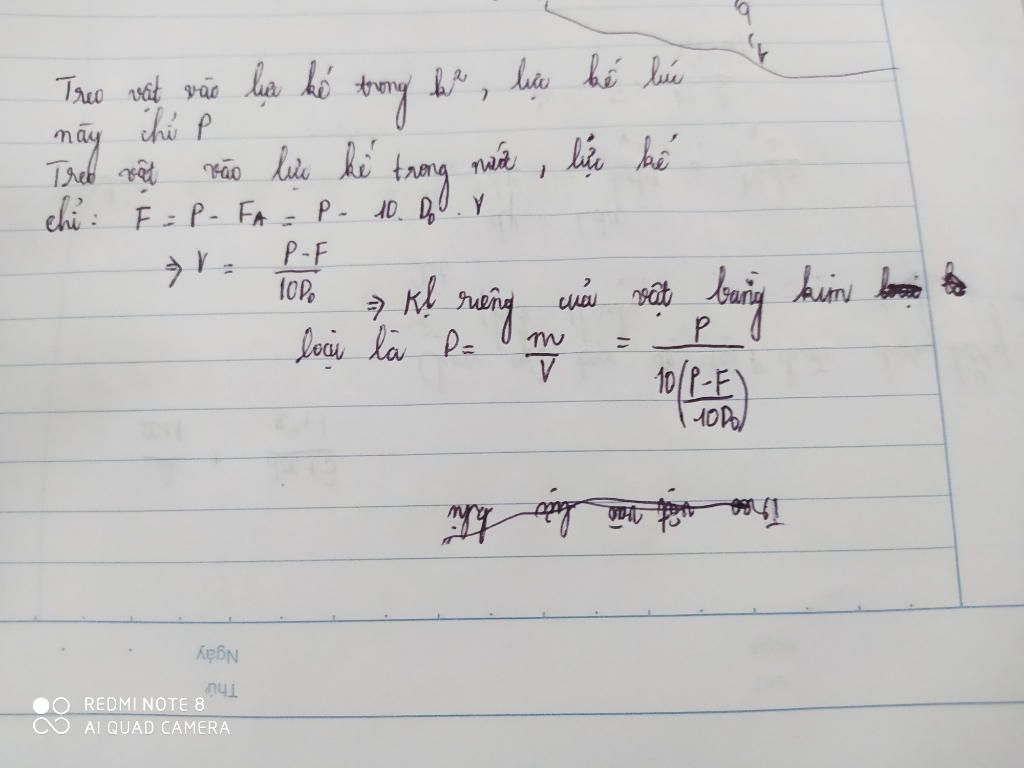 Treo vật vào lực kế trong k², lực kế lúc
này chỉ P
Treo vật vào lực kế trong nước, lực kế
chỉ: F = P - FA = P - 10. D₀ . V
⇒ V = (P-F)/(10D₀)
⇒ Kl riêng của vật bằng kim
loại là D = m/V = P/(10((P-F)/(10D₀)))
Treo vật vào lực khi
Ngày
Thứ
REDMI NOTE 8
AI QUAD CAMERA